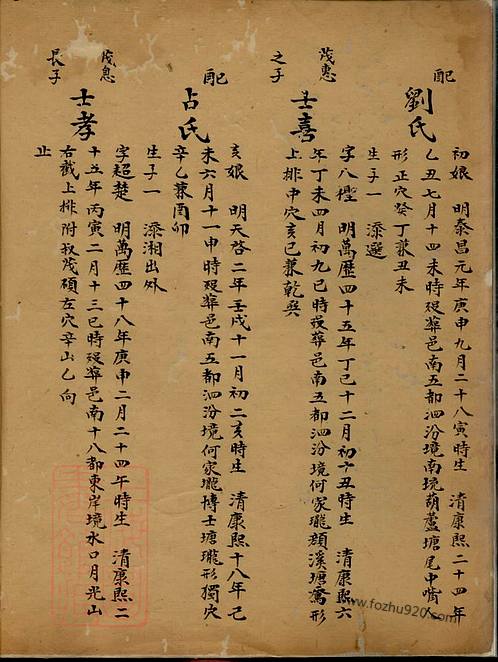 配
劉氏
初娘　明泰昌元年庚申九月二十八寅時生　清康熙二十四年
乙丑七月十四未時殁葬邑南五都泗汾境南境葫蘆塘尾中嘴人
形正穴癸丁兼丑未
生子一　添選
茂惠
之子
士喜
字八㮚　明萬歷四十五年丁巳十二月初六丑時生　清康熙六
年丁未四月初九巳時殁葬邑南五都泗汾境何家壠顔溪塘窩形
上排中穴亥巳兼乾巽
配
占氏
亥娘　明天啓二年壬戌十一月初二亥時生　清康熙十八年己
未六月十一申時殁葬邑南五都泗汾境何家壠博士塘壠形獨穴
辛乙兼酉卯
生子一　添湘出外
茂息
長子
士孝
字超楚　明萬歷四十八年庚申二月二十四午時生　清康熙二
十五年丙寅二月十三巳時殁葬邑南十八都東岸境水口月光山
右截上排附叔茂碩左穴辛山乙向
止
www.fozhu920.com